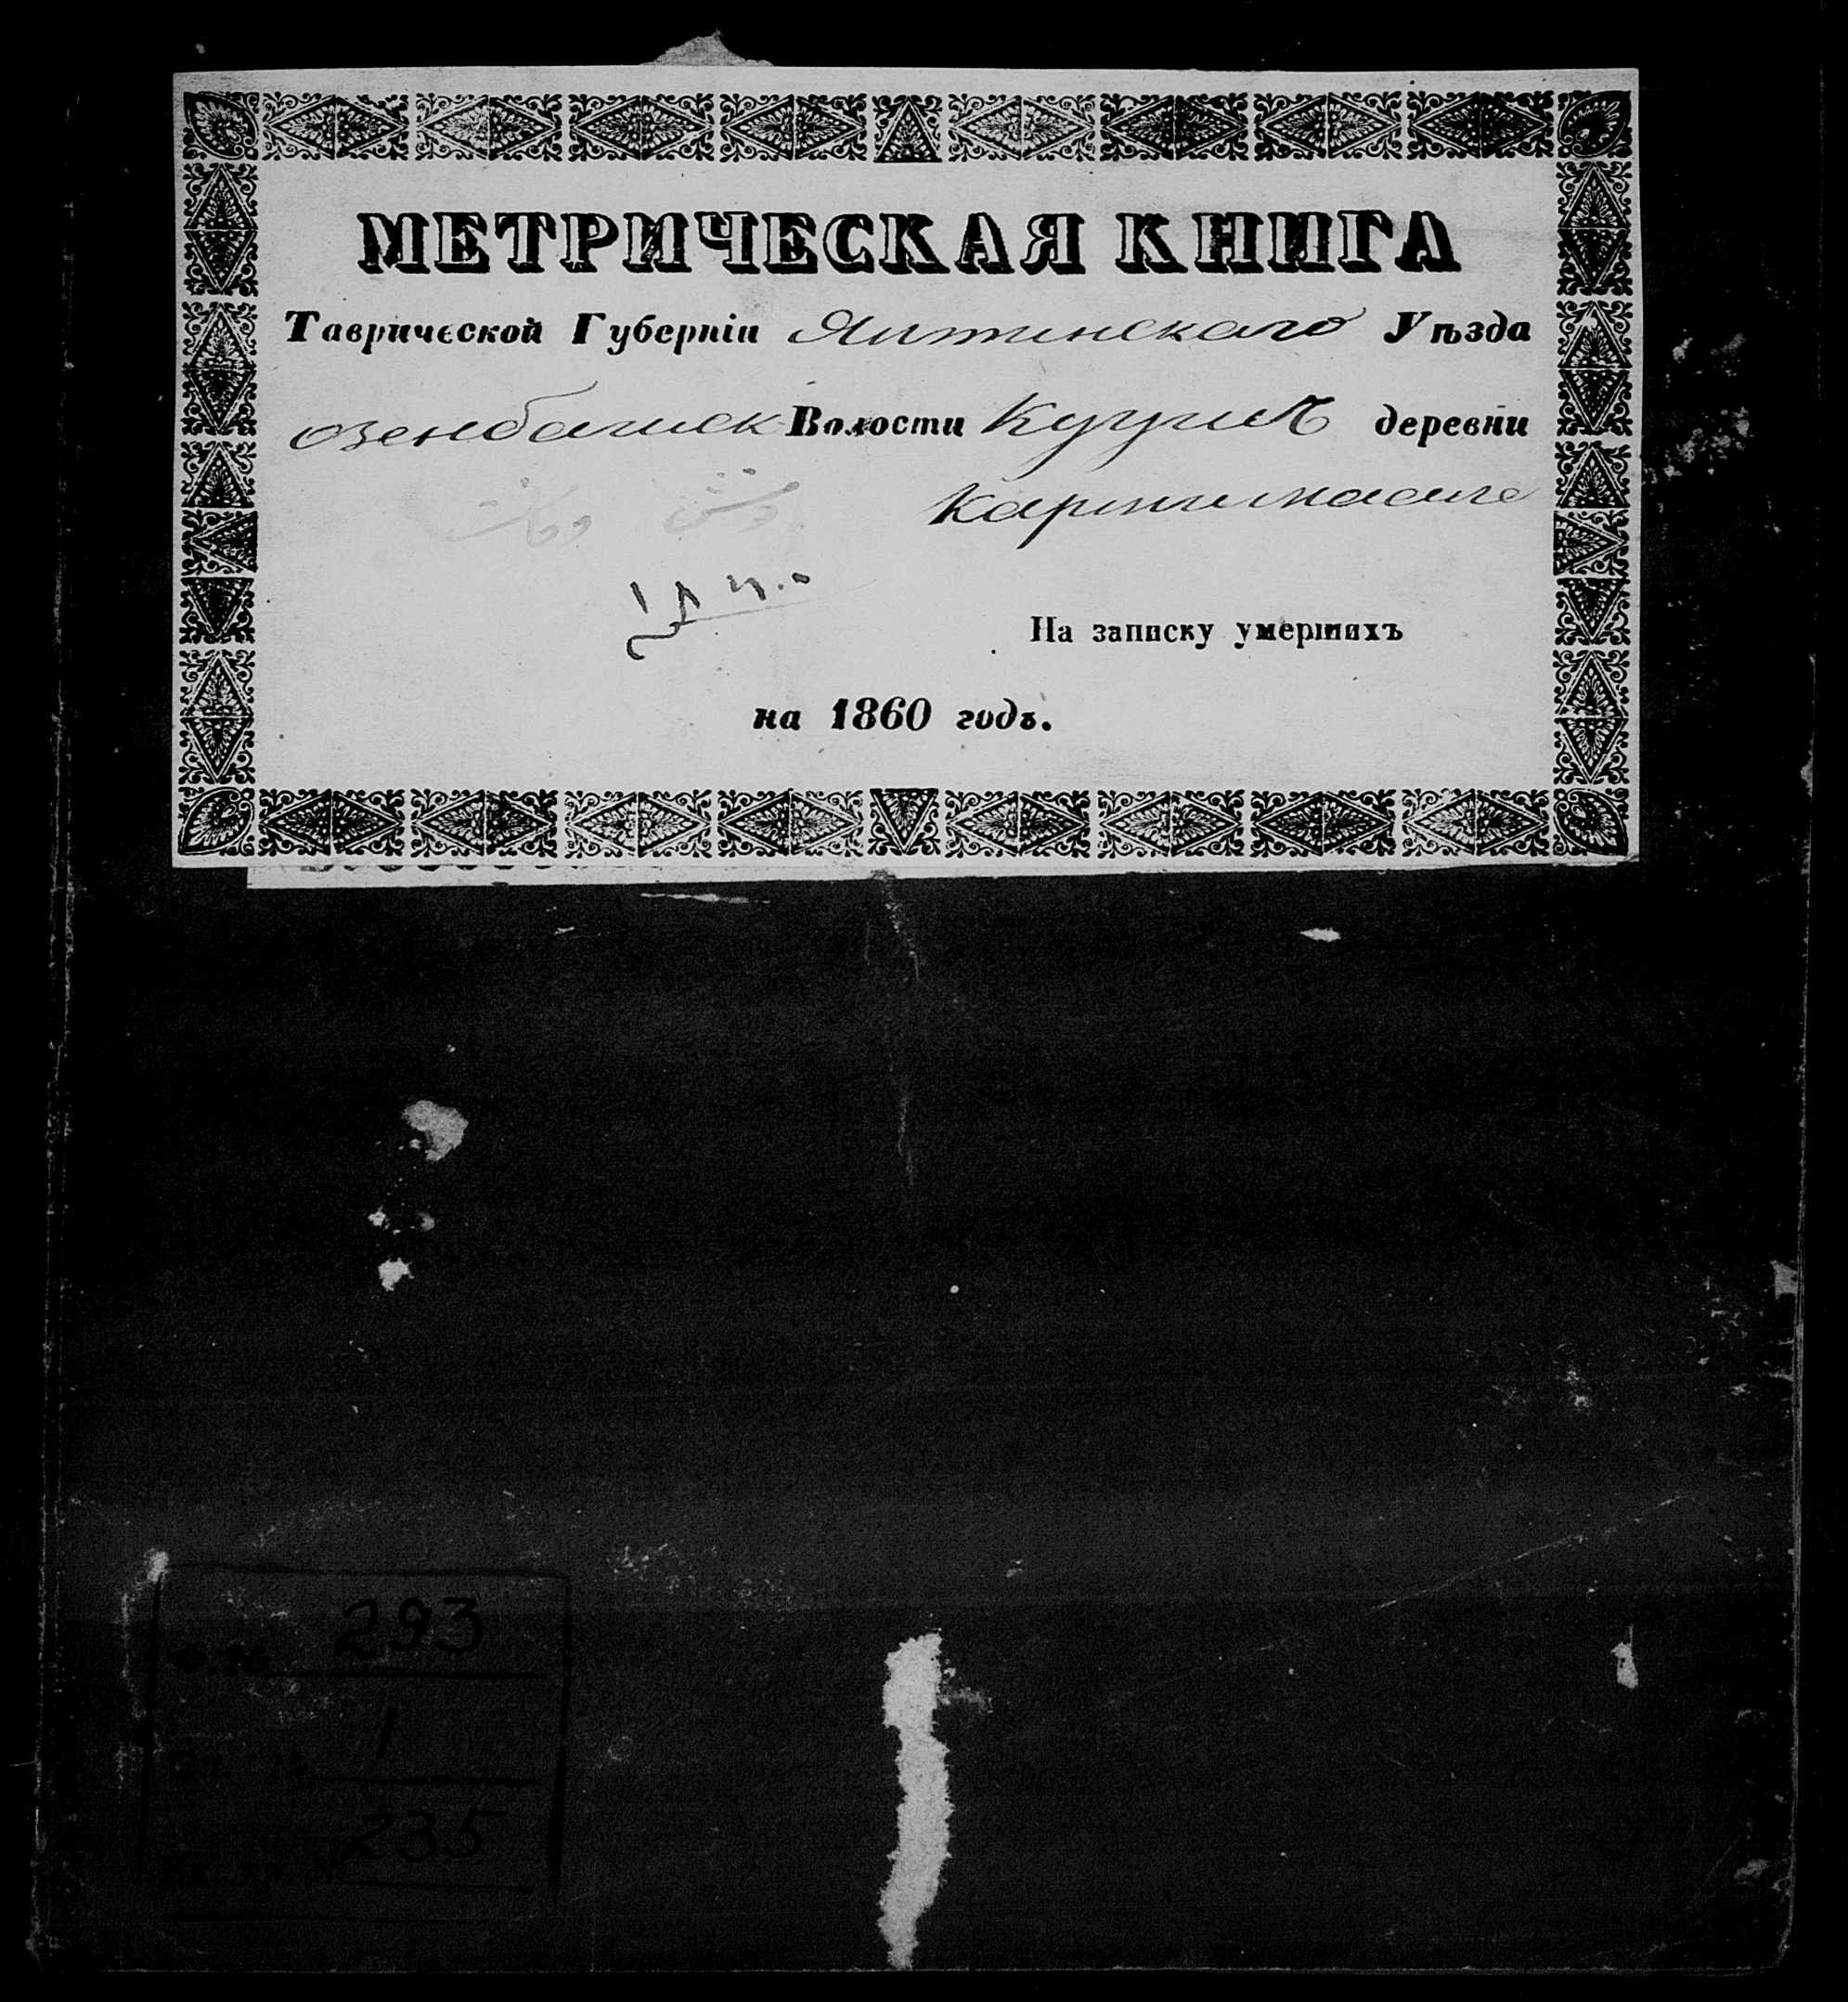 МЕТРИЧЕСКАЯ КНИГА
Таврической Губерніи Ялтинскаго Уѣзда
озенбашск Волости деревни
На записку умершихъ
на 1860 годъ.
293
1
235